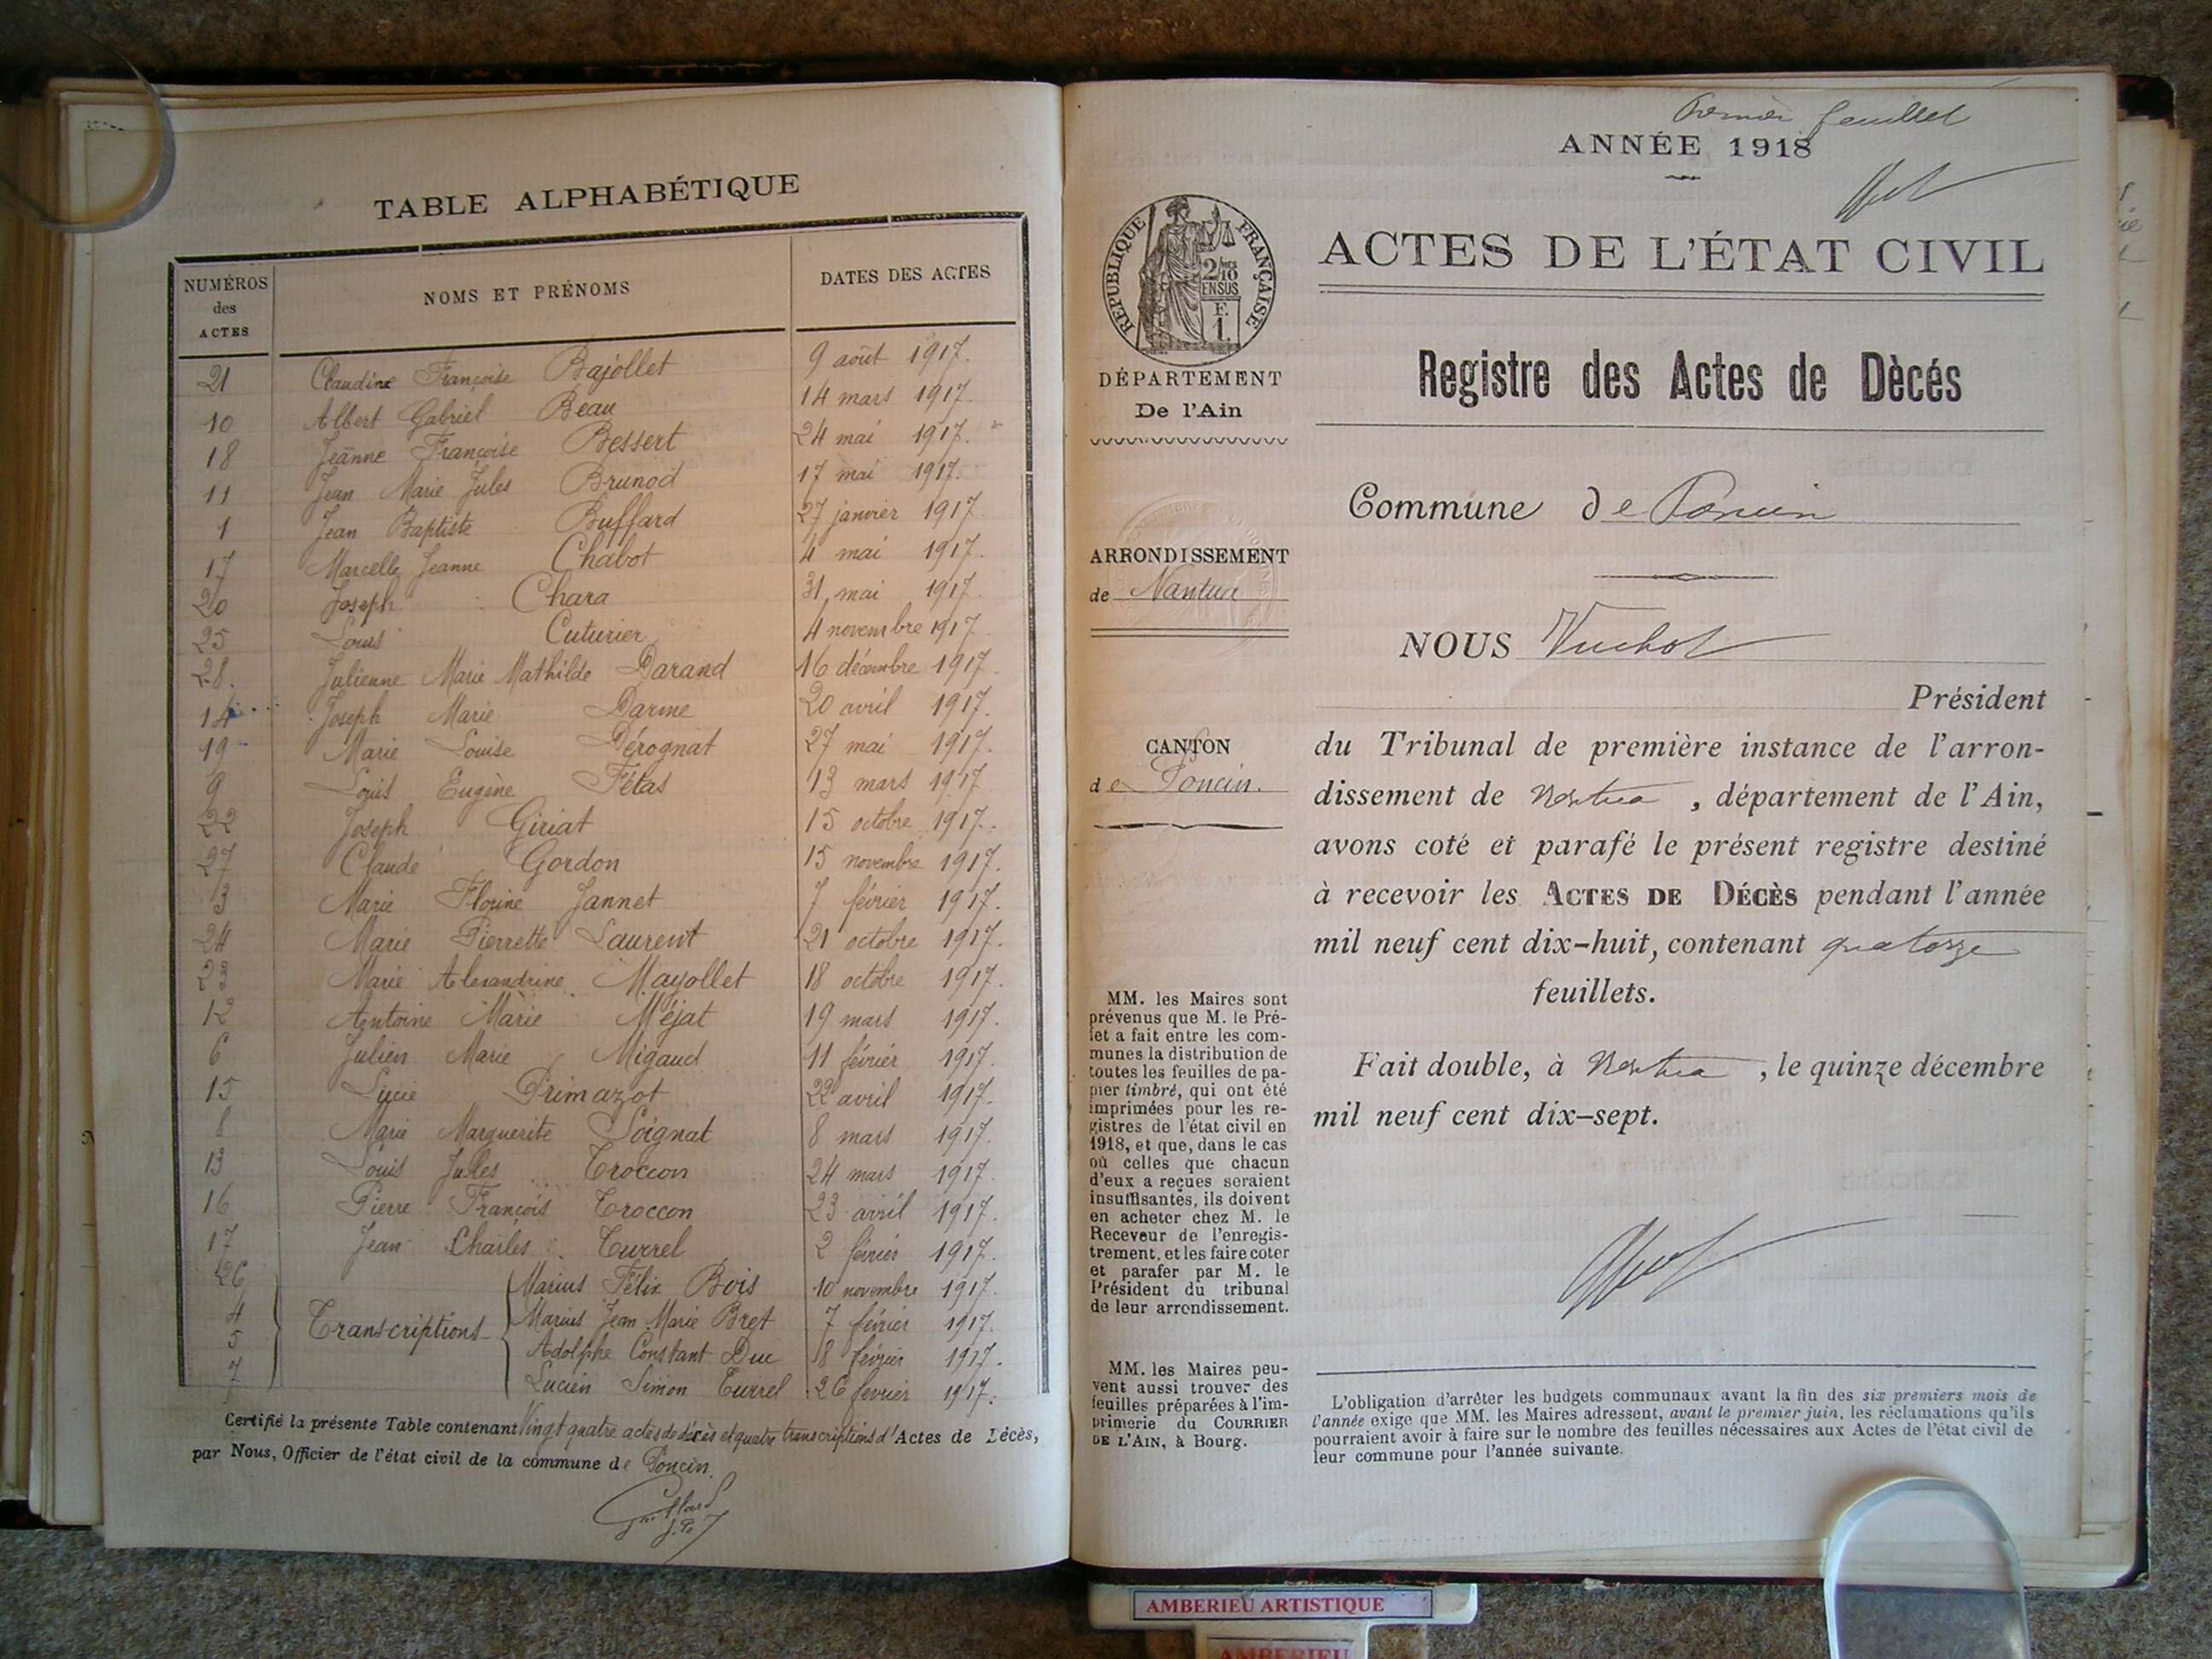 TABLE ALPHABÉTIQUE
NUMÉROS
des
ACTES
NOMS ET PRÉNOMS
DATES DES ACTES
21 Claudine Françoise Bajollet 9 août 1917.
10 Albert Gabriel Beau 14 mars 1917.
18 Jeanne Françoise Bessert 24 mai 1917.
11 Jean Marie Jules Brunod 17 mai 1917.
1 Jean Baptiste Buffard 27 janvier 1917
17 Marcelle Jeanne Chabot 4 mai 1917.
20 Joseph Chara 31 mai 1917
25 Louis Cuturier 4 novembre 1917
28. Julienne Marie Mathilde Darand 16 décembre 1917
14 Joseph Marie Darme 20 avril 1917.
19 Marie Louise Dérognat 27 mai 1917.
9 Louis Eugène Fétas 13 mars 1917
22 Joseph Giriat 15 octobre 1917.
27 Claude Gordon 15 novembre 1917.
3 Marie Florine Jannet 7 février 1917.
24 Marie Pierrette Laurent 21 octobre 1917.
23 Marie Alexandrine Mayollet 18 octobre 1917.
12 Antoine Marie Méjat 19 mars 1917.
6 Julien Marie Migaud 11 février 1917.
15 Lucie Primazot 22 avril 1917.
8 Marie Marguerite Soignat 8 mars 1917.
13 Louis Jules Troccon 24 mars 1917.
16 Pierre François Troccon 23 avril 1917.
17 Jean Charles Turrel 2 février 1917.
26 Marius Félix Bois 10 novembre 1917.
4 Transcriptions Marius Jean Marie Bret 7 février 1917.
5 Adolphe Constant Duc 8 février 1917.
7 Lucien Simon Turrel 26 février 1917.
Certifié la présente Table contenant Vingt quatre actes de décès et quatre transcriptions d'Actes de Décès,
par Nous, Officier de l'état civil de la commune de Poncin.
Premier feuillet
ANNÉE 1918
RÉPUBLIQUE FRANÇAISE
2/10 MES
EN SUS
F.
1.
ACTES DE L'ÉTAT CIVIL
DÉPARTEMENT
De l'Ain
Registre des Actes de Dècés
Commune de Poncin
ARRONDISSEMENT
de Nantua
NOUS Vuchot
Président
CANTON
de Poncin.
du Tribunal de première instance de l'arron-
dissement de Nantua, département de l'Ain,
avons coté et parafé le présent registre destiné
à recevoir les ACTES DE DÉCÈS pendant l'année
mil neuf cent dix-huit, contenant quatorze
feuillets.
Fait double, à Nantua, le quinze décembre
mil neuf cent dix-sept.
MM. les Maires sont
prévenus que M. le Pré-
fet a fait entre les com-
munes la distribution de
toutes les feuilles de pa-
pier timbré, qui ont été
imprimées pour les re-
gistres de l'état civil en
1918, et que, dans le cas
où celles que chacun
d'eux a reçues seraient
insuffisantes, ils doivent
en acheter chez M. le
Receveur de l'enregis-
trement, et les faire coter
et parafer par M. le
Président du tribunal
de leur arrondissement.
MM. les Maires peu-
vent aussi trouver des
feuilles préparées à l'im-
primerie du COURRIER
DE L'AIN, à Bourg.
L'obligation d'arrêter les budgets communaux avant la fin des six premiers mois de
l'année exige que MM. les Maires adressent, avant le premier juin, les réclamations qu'ils
pourraient avoir à faire sur le nombre des feuilles nécessaires aux Actes de l'état civil de
leur commune pour l'année suivante.
AMBERIEU ARTISTIQUE
AMBERIEU